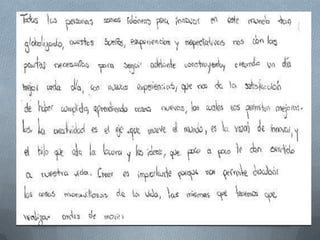 Todas las personas somos idóneas para innovar en este mundo tan
globalizado, nuestros sueños, experiencias y expectativas nos dan las
pautas necesarias para seguir adelante construyendo y creando un día
mejor cada día, con nuevas experiencias, que nos da la satisfacción
de haber cumplido, aprendiendo cosas nuevas, las cuales nos permiten mejorar.
La creatividad es el eje que mueve el mundo, es la razón de innovar, y
el hilo que ata la locura y las ideas, que poco a poco le dan sentido
a nuestra vida. Crear es importante porque nos permite descubrir
las cosas maravillosas de la vida, las mismas que tenemos que
realizar antes de morir.